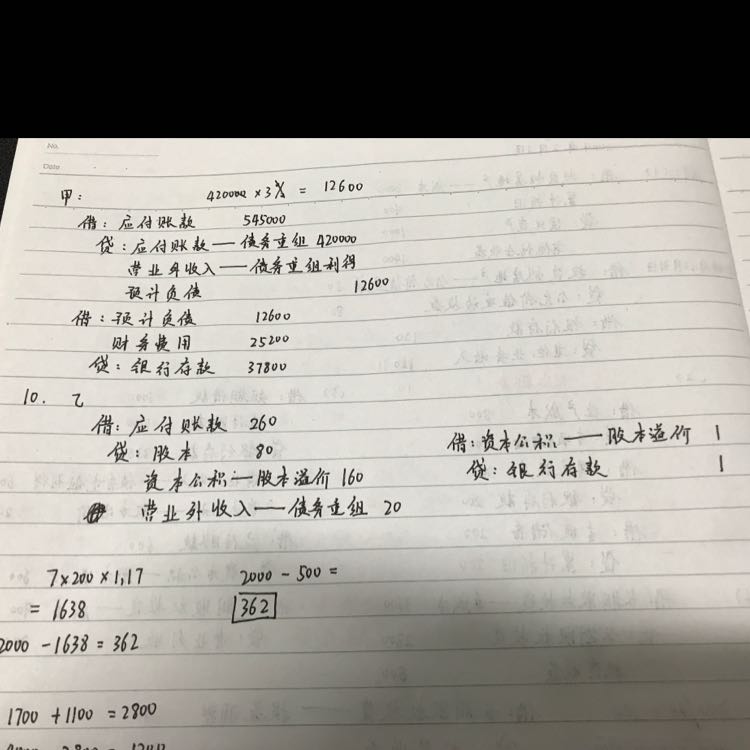 No.
Date
甲：
420000 ×3% = 12600
借：应付账款 545000
贷：应付账款——债务重组 420000
营业外收入——债务重组利得
预计负债 12600
借：预计负债 12600
财务费用 25200
贷：银行存款 37800
10. 乙
借：应付账款 260
贷：股本 80
资本公积——股本溢价 160
营业外收入——债务重组 20
借：资本公积——股本溢价 1
贷：银行存款 1
7×200×1.17
= 1638
2000 - 1638 = 362
2000 - 500 =
362
1700 + 1100 = 2800